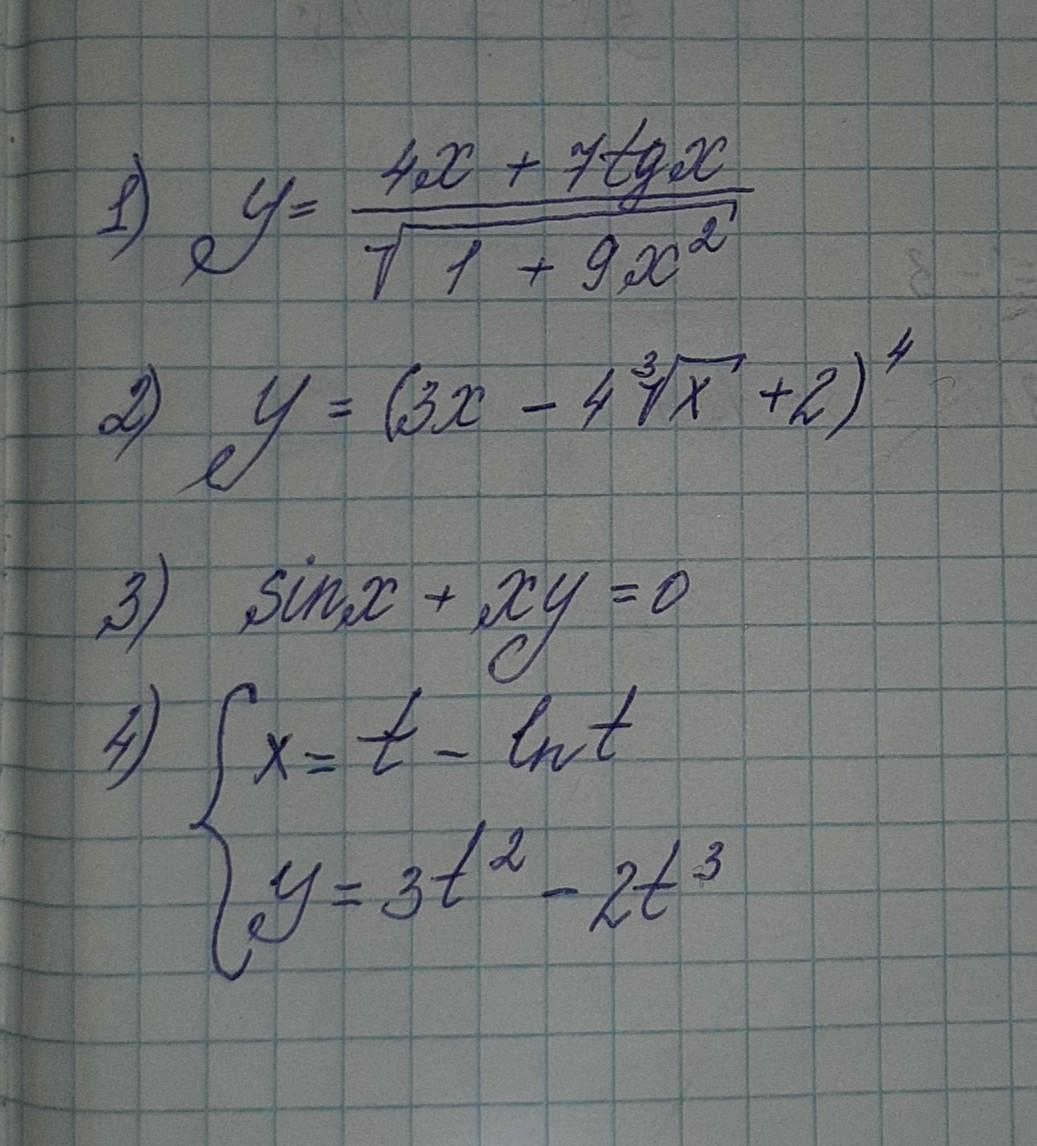 1) y = (4x + 7tgx) / √(1 + 9x²)
2) y = (3x - 4∛x + 2)⁴
3) sinx + xy = 0
4) { x = t - ln t
y = 3t² - 2t³